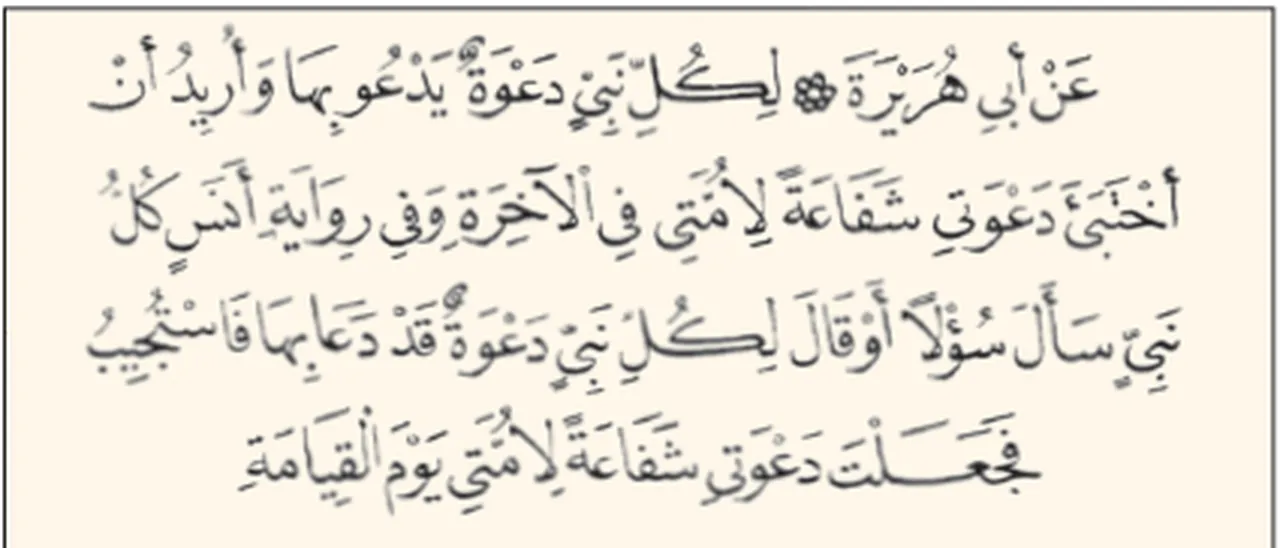 عَنْ أَبِي هُرَيْرَةَ ۞ لِكُلِّ نَبِيٍّ دَعْوَةٌ يَدْعُو بِهَا وَأُرِيدُ أَنْ
أَخْتَبِئَ دَعْوَتِي شَفَاعَةً لِأُمَّتِي فِي الْآخِرَةِ وَفِي رِوَايَةِ أَنَسٍ كُلُّ
نَبِيٍّ سَأَلَ سُؤْلًا أَوْ قَالَ لِكُلِّ نَبِيٍّ دَعْوَةٌ قَدْ دَعَا بِهَا فَاسْتُجِيبُ
فَجَعَلْتَ دَعْوَتِي شَفَاعَةً لِأُمَّتِي يَوْمَ الْقِيَامَةِ